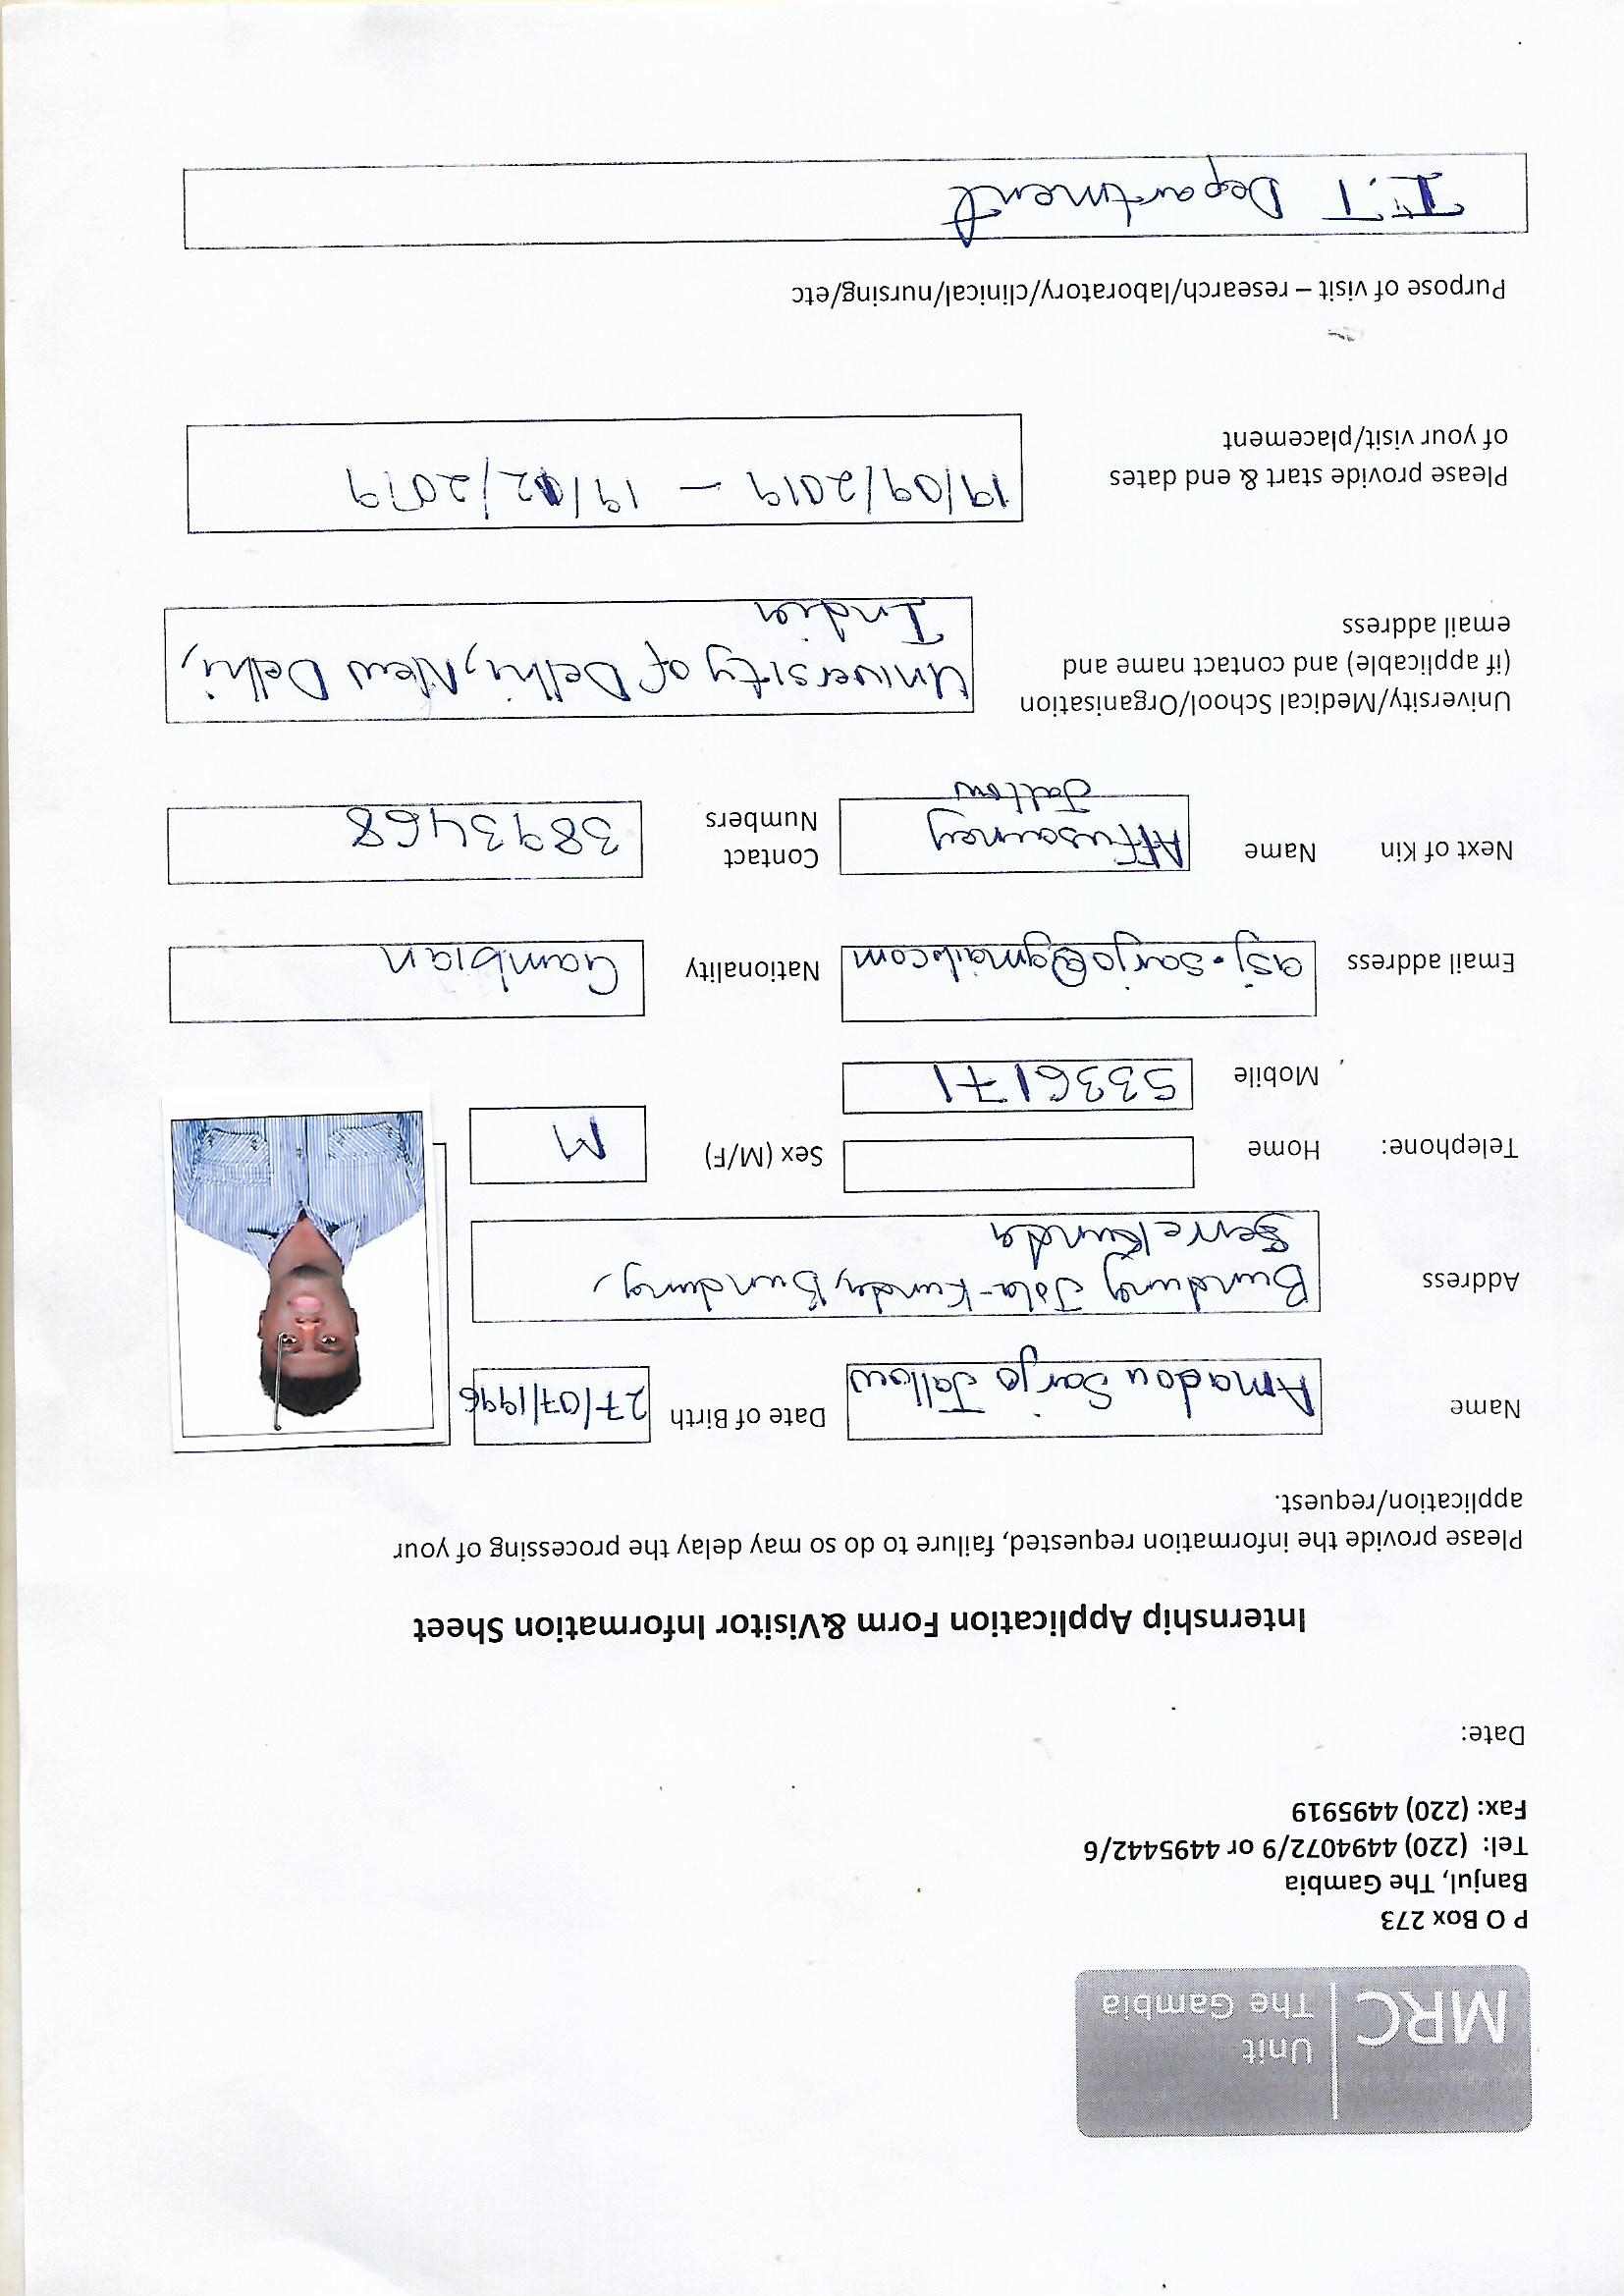 MRC Unit
The Gambia
P O Box 273
Banjul, The Gambia
Tel: (220) 4494072/9 or 4495442/6
Fax: (220) 4495919
Date:
Internship Application Form &Visitor Information Sheet
Please provide the information requested, failure to do so may delay the processing of your
application/request.
Name Amadou Sarjo Jallow Date of Birth 27/07/1996
Address Bundung Jola-Kunda, Bundung,
Serrekunda
Telephone: Home Sex (M/F) M
Mobile 5336171
Email address asj.sarjo@gmail.com Nationality Gambian
Next of Kin Name Affusainey Jallow Contact
Numbers 3893468
University/Medical School/Organisation
(if applicable) and contact name and
email address
University of Delhi, New Delhi,
India
Please provide start & end dates
of your visit/placement
19/09/2019 – 19/12/2019
Purpose of visit – research/laboratory/clinical/nursing/etc
I.T Department